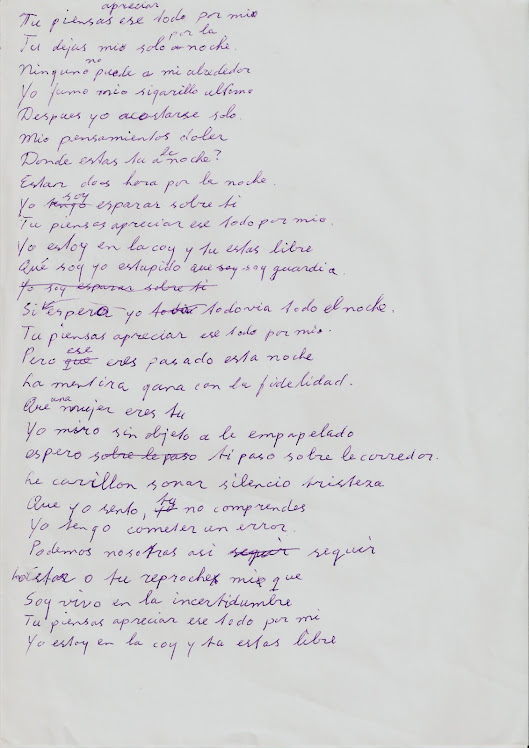 apreciar
Tu piensas ese todo por mio
por la
Tu dejas mio solo a noche.
no
Ninguno puede a mi alrededor
Yo fumo mio sigarillo ultimo
Despues yo acostarse solo.
Mio pensamientos doler
Donde estas tu a la noche?
Estan dos hora por la noche.
soy
Yo tengo esparar sobre ti
Tu piensas apreciar ese todo por mio.
Yo estoy en la coy y tu estas libre
Qué soy yo estupido que soy soy guardia.
Yo soy esparar sobre ti
Si espero yo todovia todo el noche.
Tu piensas apreciar ese todo por mio.
ese
Pero que eres pasado esta noche
La mentira gana con la fidelidad.
una
Que mujer eres tu
Yo miro sin objeto a le empapelado
espero sobre le paso ti paso sobre le corredor.
Le carillon sonar silencio tristeza
tu
Que yo sento, no comprendes
Yo tengo cometer un error.
Podemos nosotras asi seguir seguir
o tu reproches mio que
Soy vivo en la incertidumbre
Tu piensas apreciar ese todo por mi
Yo estoy en la coy y tu estas libre